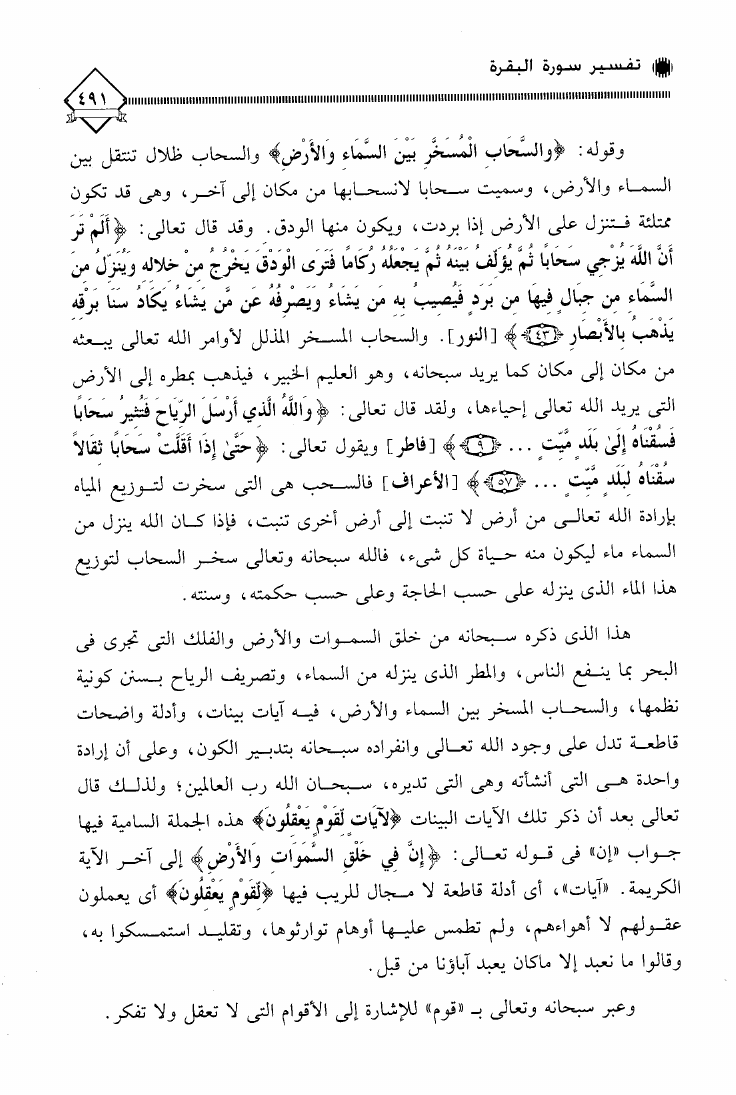 تفسير سورة البقرة
٤٩١
وقوله: ﴿والسَّحَابِ الْمُسَخَّرِ بَيْنَ السَّمَاءِ وَالأَرْضِ﴾ والسحاب ظلال تنتقل بين
السماء والأرض، وسميت سحابا لانسحابها من مكان إلى آخر، وهى قد تكون
ممتلئة فتنزل على الأرض إذا بردت، ويكون منها الودق. وقد قال تعالى: ﴿أَلَمْ تَرَ
أَنَّ اللَّهَ يُزْجِي سَحَابًا ثُمَّ يُؤَلِّفُ بَيْنَهُ ثُمَّ يَجْعَلُهُ رُكَامًا فَتَرَى الْوَدْقَ يَخْرُجُ مِنْ خلاله وَيُنَزِّلُ مِنَ
السَّمَاءِ مِن جِبَالٍ فِيهَا مِن بَرَدٍ فَيُصِيبُ بِهِ مَن يَشَاءُ وَيَصْرِفُهُ عَن مَّن يَشَاءُ يَكَادُ سَنَا بَرْقِهِ
يَذْهَبُ بِالأَبْصَارِ ﴿٤٣﴾﴾ [النور]. والسحاب المسخر المذلل لأوامر الله تعالى يبعثه
من مكان إلى مكان كما يريد سبحانه، وهو العليم الخبير، فيذهب بمطره إلى الأرض
التى يريد الله تعالى إحياءها، ولقد قال تعالى: ﴿وَاللَّهُ الَّذِي أَرْسَلَ الرِّيَاحَ فَتُثِيرُ سَحَابًا
فَسُقْنَاهُ إِلَىٰ بَلَدٍ مَّيِّتٍ ... ﴿٩﴾﴾ [فاطر] ويقول تعالى: ﴿حَتَّىٰ إِذَا أَقَلَّتْ سَحَابًا ثِقَالاً
سُقْنَاهُ لِبَلَدٍ مَّيِّتٍ ... ﴿٥٧﴾﴾ [الأعراف] فالسحب هى التى سخرت لتوزيع المياه
بإرادة الله تعالى من أرض لا تنبت إلى أرض أخرى تنبت، فإذا كان الله ينزل من
السماء ماء ليكون منه حياة كل شىء، فالله سبحانه وتعالى سخر السحاب لتوزيع
هذا الماء الذى ينزله على حسب الحاجة وعلى حسب حكمته، وسنته.
هذا الذى ذكره سبحانه من خلق السموات والأرض والفلك التى تجرى فى
البحر بما ينفع الناس، والمطر الذى ينزله من السماء، وتصريف الرياح بسنن كونية
نظمها، والسحاب المسخر بين السماء والأرض، فيه آيات بينات، وأدلة واضحات
قاطعة تدل على وجود الله تعالى وانفراده سبحانه بتدبير الكون، وعلى أن إرادة
واحدة هى التى أنشأته وهى التى تديره، سبحان الله رب العالمين؛ ولذلك قال
تعالى بعد أن ذكر تلك الآيات البينات ﴿لآيَاتٍ لِّقَوْمٍ يَعْقِلُونَ﴾ هذه الجملة السامية فيها
جواب «إن» فى قوله تعالى: ﴿إِنَّ فِي خَلْقِ السَّمَوَاتِ وَالأَرْضِ﴾ إلى آخر الآية
الكريمة. «آيات»، أى أدلة قاطعة لا مجال للريب فيها ﴿لِّقَوْمٍ يَعْقِلُونَ﴾ أى يعملون
عقولهم لا أهواءهم، ولم تطمس عليها أوهام توارثوها، وتقليد استمسكوا به،
وقالوا ما نعبد إلا ماكان يعبد آباؤنا من قبل.
وعبر سبحانه وتعالى بـ «قوم» للإشارة إلى الأقوام التى لا تعقل ولا تفكر.